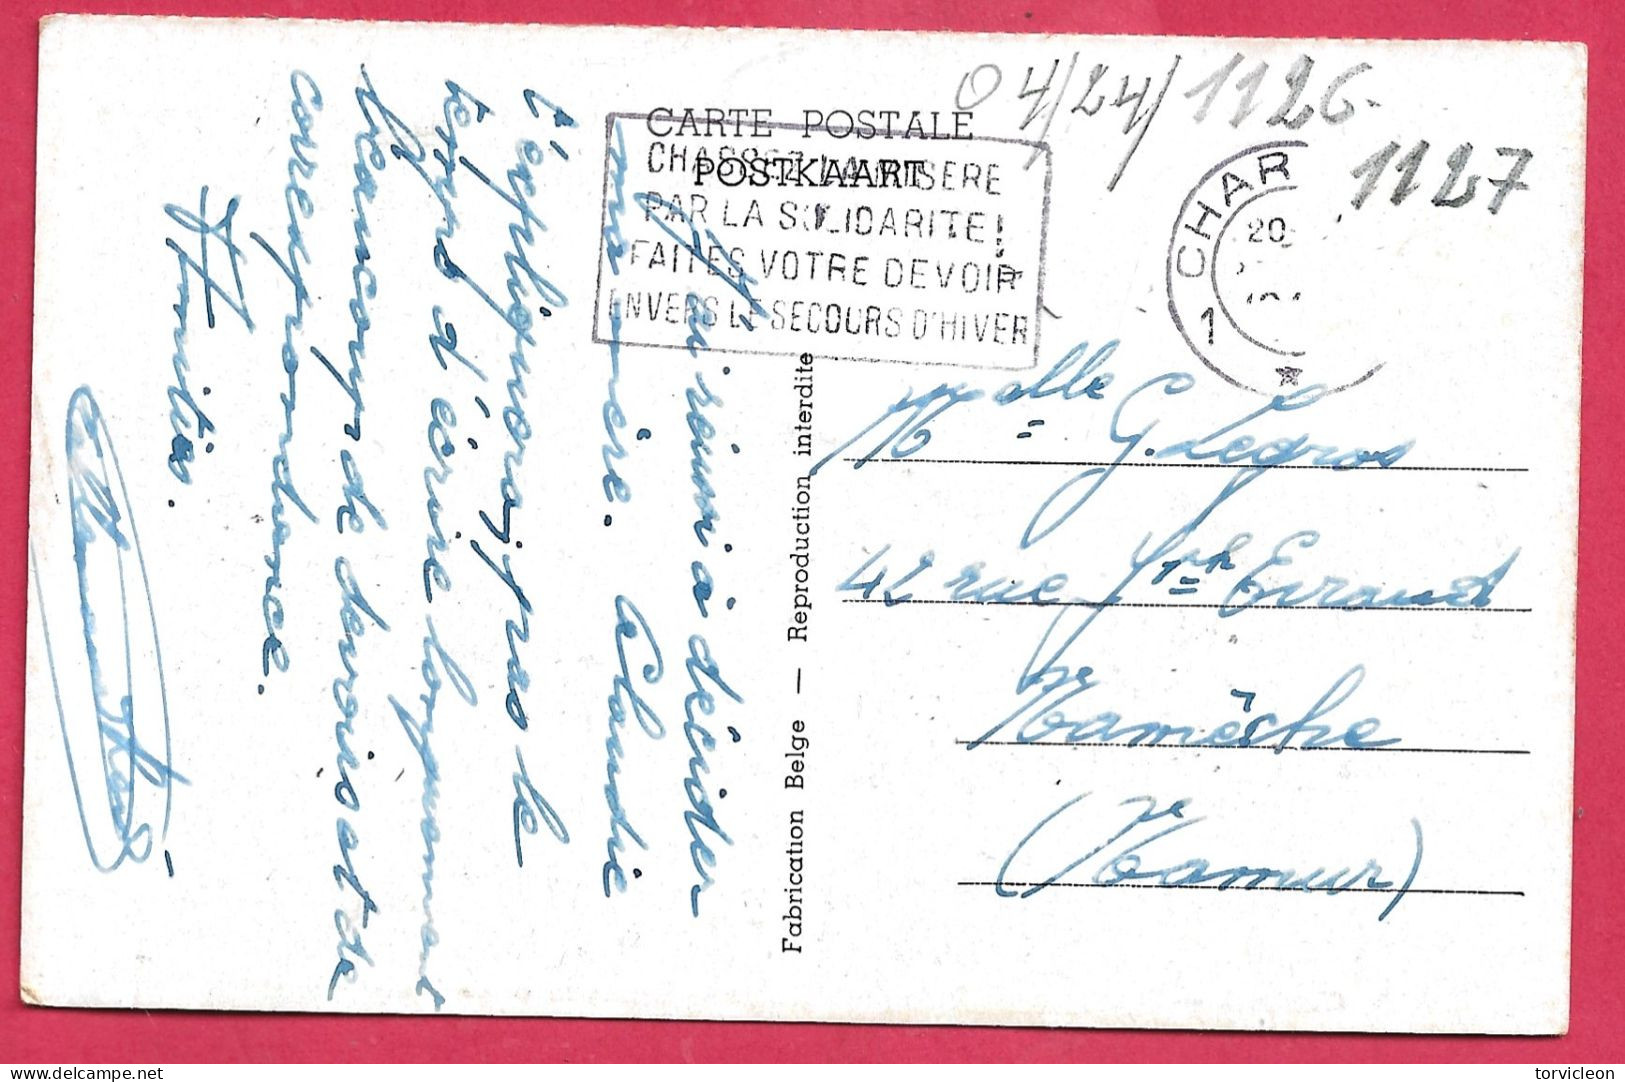 04/24/1126.
1127
CARTE POSTALE
POSTKAART
CHASSEZ LA MISERE
PAR LA SOLIDARITE!
FAITES VOTRE DEVOIR
ENVERS LE SECOURS D'HIVER
1 CHAR
20
Melle G. Legros
42 rue Evraud
Namêche
(Namur)
Fabrication Belge — Reproduction interdite
réussi à décider
ma mère. Claudie
t'expliquera, pas le
temps d'écrire longuement
Beaucoup de devoirs et de
correspondance.
Amitiés.
torvicleon